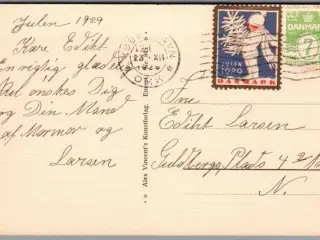 Julen 1929
Kære Edith
En rigtig glædelig
Jul ønskes Dig
og Din Mand
af Mormor og
Larsen
Alex Vincent's Kunstforlag.
23 XII
JULEN
1929
DANMARK
DANMARK
7
Fru
Edith Larsen
Guldbergs Plads 4
N.